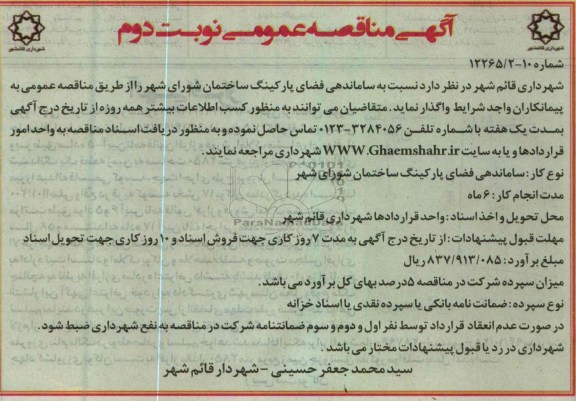 آگهی مناقصه عمومی نوبت دوم
شهرداری قائمشهر
شهرداری قائمشهر
شماره ۱۰-۱۲۲۶۵/۲
شهرداری قائم شهر در نظر دارد نسبت به ساماندهی فضای پارکینگ ساختمان شورای شهر را از طریق مناقصه عمومی به
پیمانکاران واجد شرایط واگذار نماید. متقاضیان می توانند به منظور کسب اطلاعات بیشتر همه روزه از تاریخ درج آگهی
بمدت یک هفته با شماره تلفن ۳۲۸۴۰۵۶-۰۱۲۳ تماس حاصل نموده و به منظور دریافت اسناد مناقصه به واحد امور
قراردادها و یا به سایت WWW.Ghaemshahr.ir شهرداری مراجعه نمایند.
نوع کار: ساماندهی فضای پارکینگ ساختمان شورای شهر
مدت انجام کار: ۶ ماه
محل تحویل و اخذ اسناد: واحد قراردادها شهرداری قائم شهر
مهلت قبول پیشنهادات: از تاریخ درج آگهی به مدت ۷ روز کاری جهت فروش اسناد و ۱۰ روز کاری جهت تحویل اسناد
مبلغ برآورد: ۸۳۷/۹۱۳/۰۸۵ ریال
میزان سپرده شرکت در مناقصه ۵درصد بهای کل برآورد می باشد.
نوع سپرده: ضمانت نامه بانکی یا سپرده نقدی یا اسناد خزانه
در صورت عدم انعقاد قرارداد توسط نفر اول و دوم و سوم ضمانتنامه شرکت در مناقصه به نفع شهرداری ضبط شود.
شهرداری در رد یا قبول پیشنهادات مختار می باشد.
سید محمد جعفر حسینی - شهردار قائم شهر